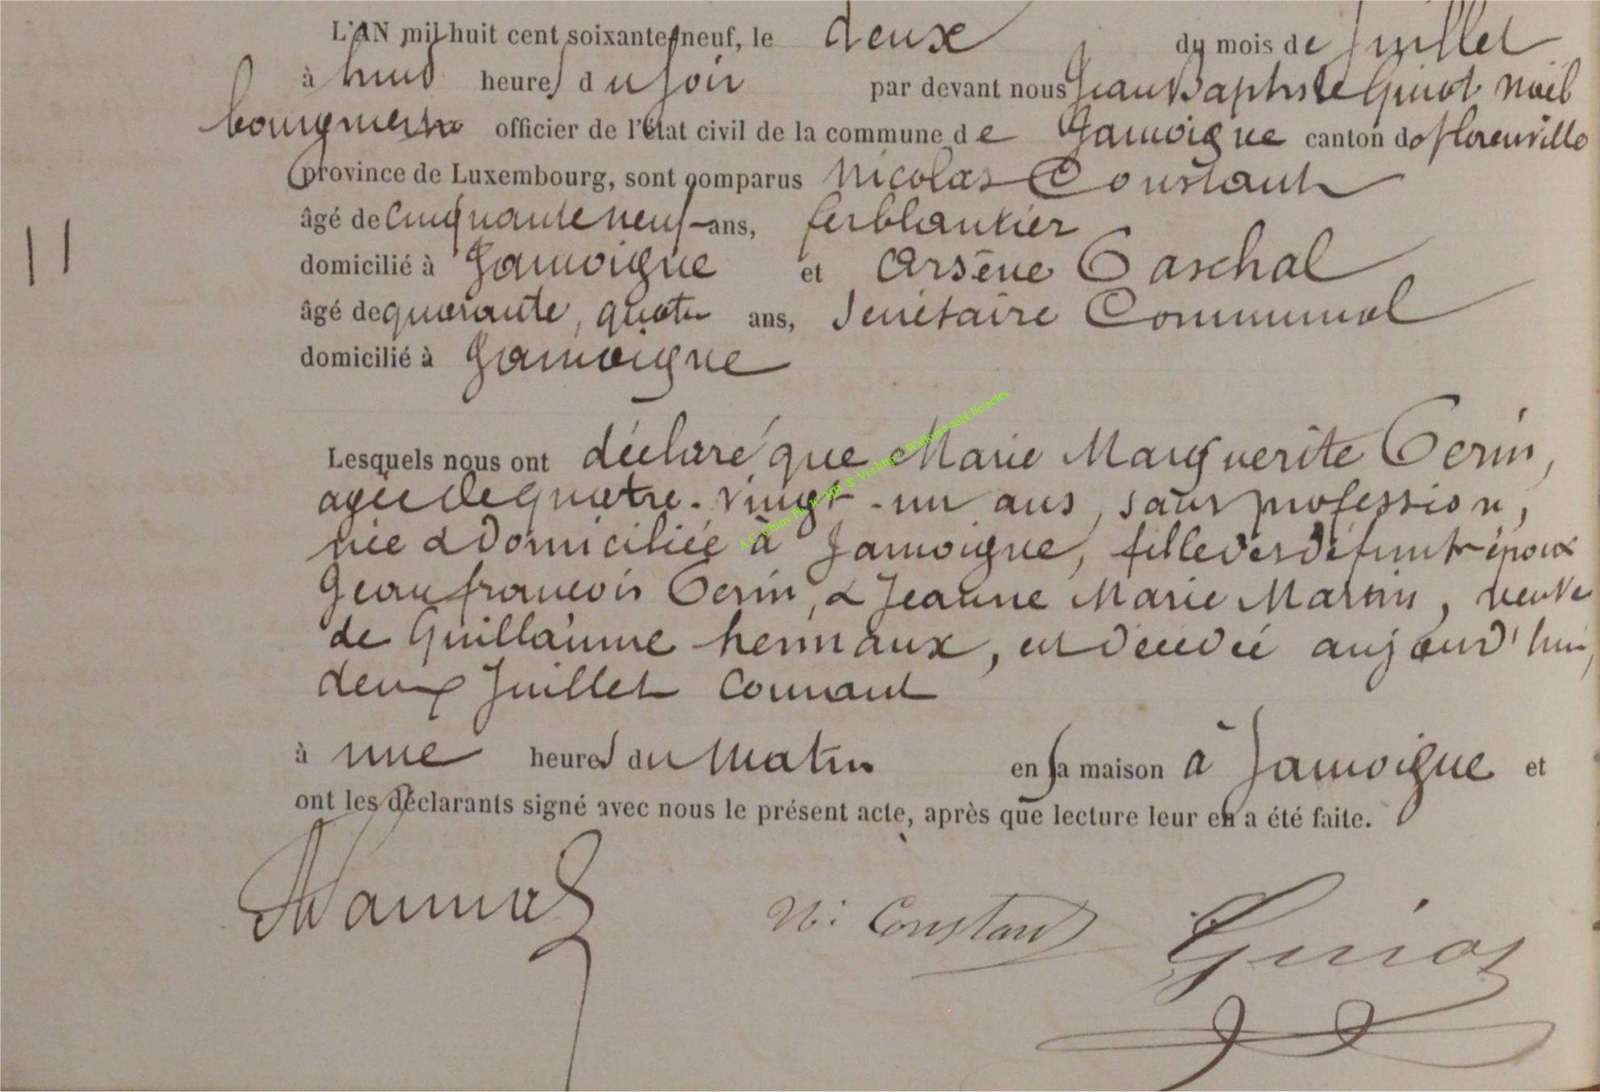 L'AN mil huit cent soixante neuf, le deux du mois de Juillet
à huit heures du soir par devant nous Jean Baptiste Guiot Noël
bourgmestre officier de l'état civil de la commune de Jamoigne canton de florenville
province de Luxembourg, sont comparus Nicolas Constant
âgé de cinquante neuf ans, ferblantier
domicilié à Jamoigne et Arsène Paschal
âgé de quarante, quatre ans, Secrétaire Communal
domicilié à Jamoigne
11
Lesquels nous ont déclaré que Marie Marguerite Perin,
agée de quatre-vingt-un ans, sans profession,
née & domiciliée à Jamoigne, fille des défunts époux
Jean francois Perin, & Jeanne Marie Martin, veuve
de Guillaume hennaux, est décédée aujourd'hui,
deux Juillet Courant
à une heures du matin en sa maison à Jamoigne et
ont les déclarants signé avec nous le présent acte, après que lecture leur en a été faite.
N: Constant Guiot